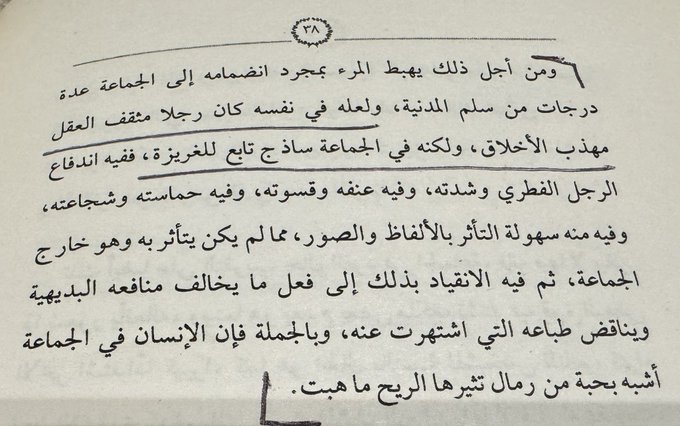 ٣٨
ومن أجل ذلك يهبط المرء بمجرد انضمامه إلى الجماعة عدة
درجات من سلم المدنية، ولعله في نفسه كان رجلا مثقف العقل
مهذب الأخلاق، ولكنه في الجماعة ساذج تابع للغريزة، ففيه اندفاع
الرجل الفطري وشدته، وفيه عنفه وقسوته، وفيه حماسته وشجاعته،
وفيه منه سهولة التأثر بالألفاظ والصور، مما لم يكن يتأثر به وهو خارج
الجماعة، ثم فيه الانقياد بذلك إلى فعل ما يخالف منافعه البديهية
ويناقض طباعه التي اشتهرت عنه، وبالجملة فإن الإنسان في الجماعة
أشبه بحبة من رمال تثيرها الريح ما هبت.